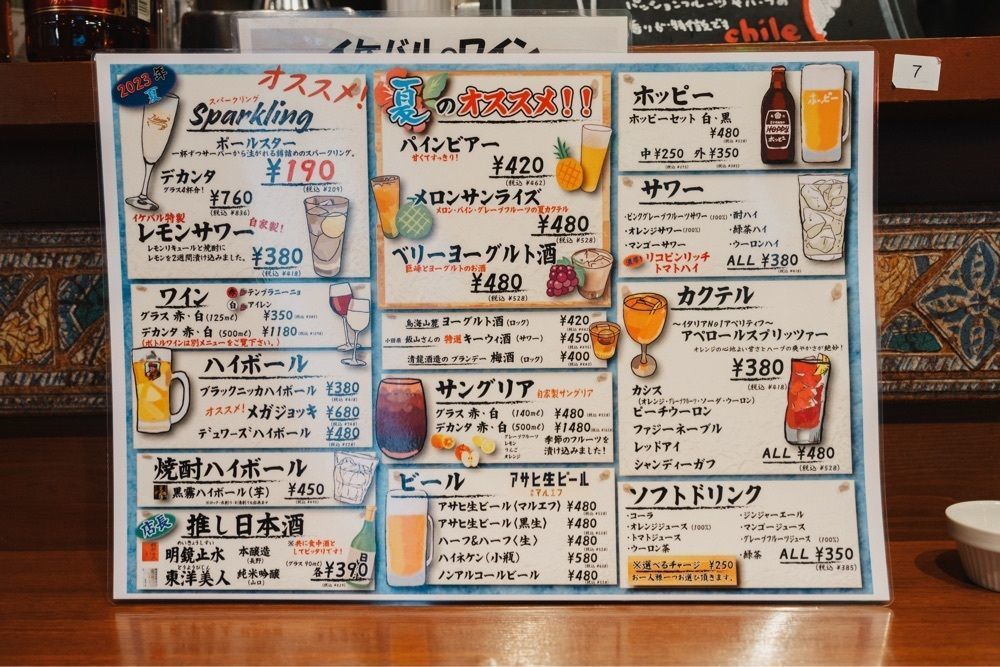 イケバルのワイン
chile
7
2023年
夏
オススメ!
スパークリング
Sparkling
ポールスター
一杯ずつサーバーから注がれる樽詰めのスパークリング。
¥190
(税込 ¥209)
デカンタ
グラス4杯分!
¥760
(税込 ¥836)
イケバル特製
レモンサワー
自家製!
レモンリキュールと焼酎に
レモンを2週間漬け込みました。
¥380
(税込 ¥418)
ワイン
赤 テンプラニーニョ
白 アイレン
グラス 赤・白 (125ml) ¥350
デカンタ 赤・白 (500ml) ¥1180
(ボトルワインは別メニューをご覧下さい。)
ハイボール
ブラックニッカハイボール ¥380
オススメ! メガジョッキ ¥680
デュワーズハイボール ¥480
焼酎ハイボール
黒霧ハイボール(芋) ¥450
店長
推し日本酒
めいきょうしすい
明鏡止水 本醸造
(長野)
東洋美人 純米吟醸
(山口)
※共に食中酒と
してピッタリです!
(グラス 90ml)
各¥390
夏のオススメ!!
パインビアー
甘くてすっきり!
¥420
(税込 ¥462)
メロンサンライズ
メロン・パイン・グレープフルーツの夏カクテル
¥480
(税込 ¥528)
ベリーヨーグルト酒
巨峰とヨーグルトのお酒
¥480
(税込 ¥528)
鳥海山麓 ヨーグルト酒 (ロック) ¥420
小田原 飯山さんの 特選 キーウィ酒 (サワー) ¥450
清龍酒造の ブランデー 梅酒 (ロック) ¥400
サングリア
自家製サングリア
グラス 赤・白 (140ml) ¥480
デカンタ 赤・白 (500ml) ¥1480
グレープフルーツ
レモン
りんご
オレンジ
季節のフルーツを
漬け込みました!
ビール
アサヒ生ビール
マルエフ
アサヒ生ビール〈マルエフ〉 ¥480
アサヒ生ビール〈黒生〉 ¥480
ハーフ&ハーフ〈生〉 ¥480
ハイネケン〈小瓶〉 ¥580
ノンアルコールビール ¥480
ホッピー
ホッピーセット 白・黒
¥480
中¥250 外¥350
HOPPY
ホッピー
サワー
・ピンクグレープフルーツサワー(100%) ・酎ハイ
・オレンジサワー(100%) ・緑茶ハイ
・マンゴーサワー ・ウーロンハイ
濃厚! リコピンリッチ
トマトハイ
ALL ¥380
(税込 ¥418)
カクテル
〜イタリアNo1アペリティフ〜
アペロールスプリッツァー
オレンジの心地よい甘さとハーブの爽やかさが絶妙!
¥380
(税込 ¥418)
カシス
(オレンジ・グレープフルーツ・ソーダ・ウーロン)
ピーチウーロン
ファジーネーブル
レッドアイ
シャンディーガフ
ALL ¥480
(税込 ¥528)
ソフトドリンク
・コーラ ・ジンジャーエール
・オレンジジュース(100%) ・マンゴージュース
・トマトジュース ・グレープフルーツジュース(100%)
・ウーロン茶 ・緑茶
ALL ¥350
(税込 ¥385)
※選べるチャージ ¥250
お一人様一つお選び頂きます。